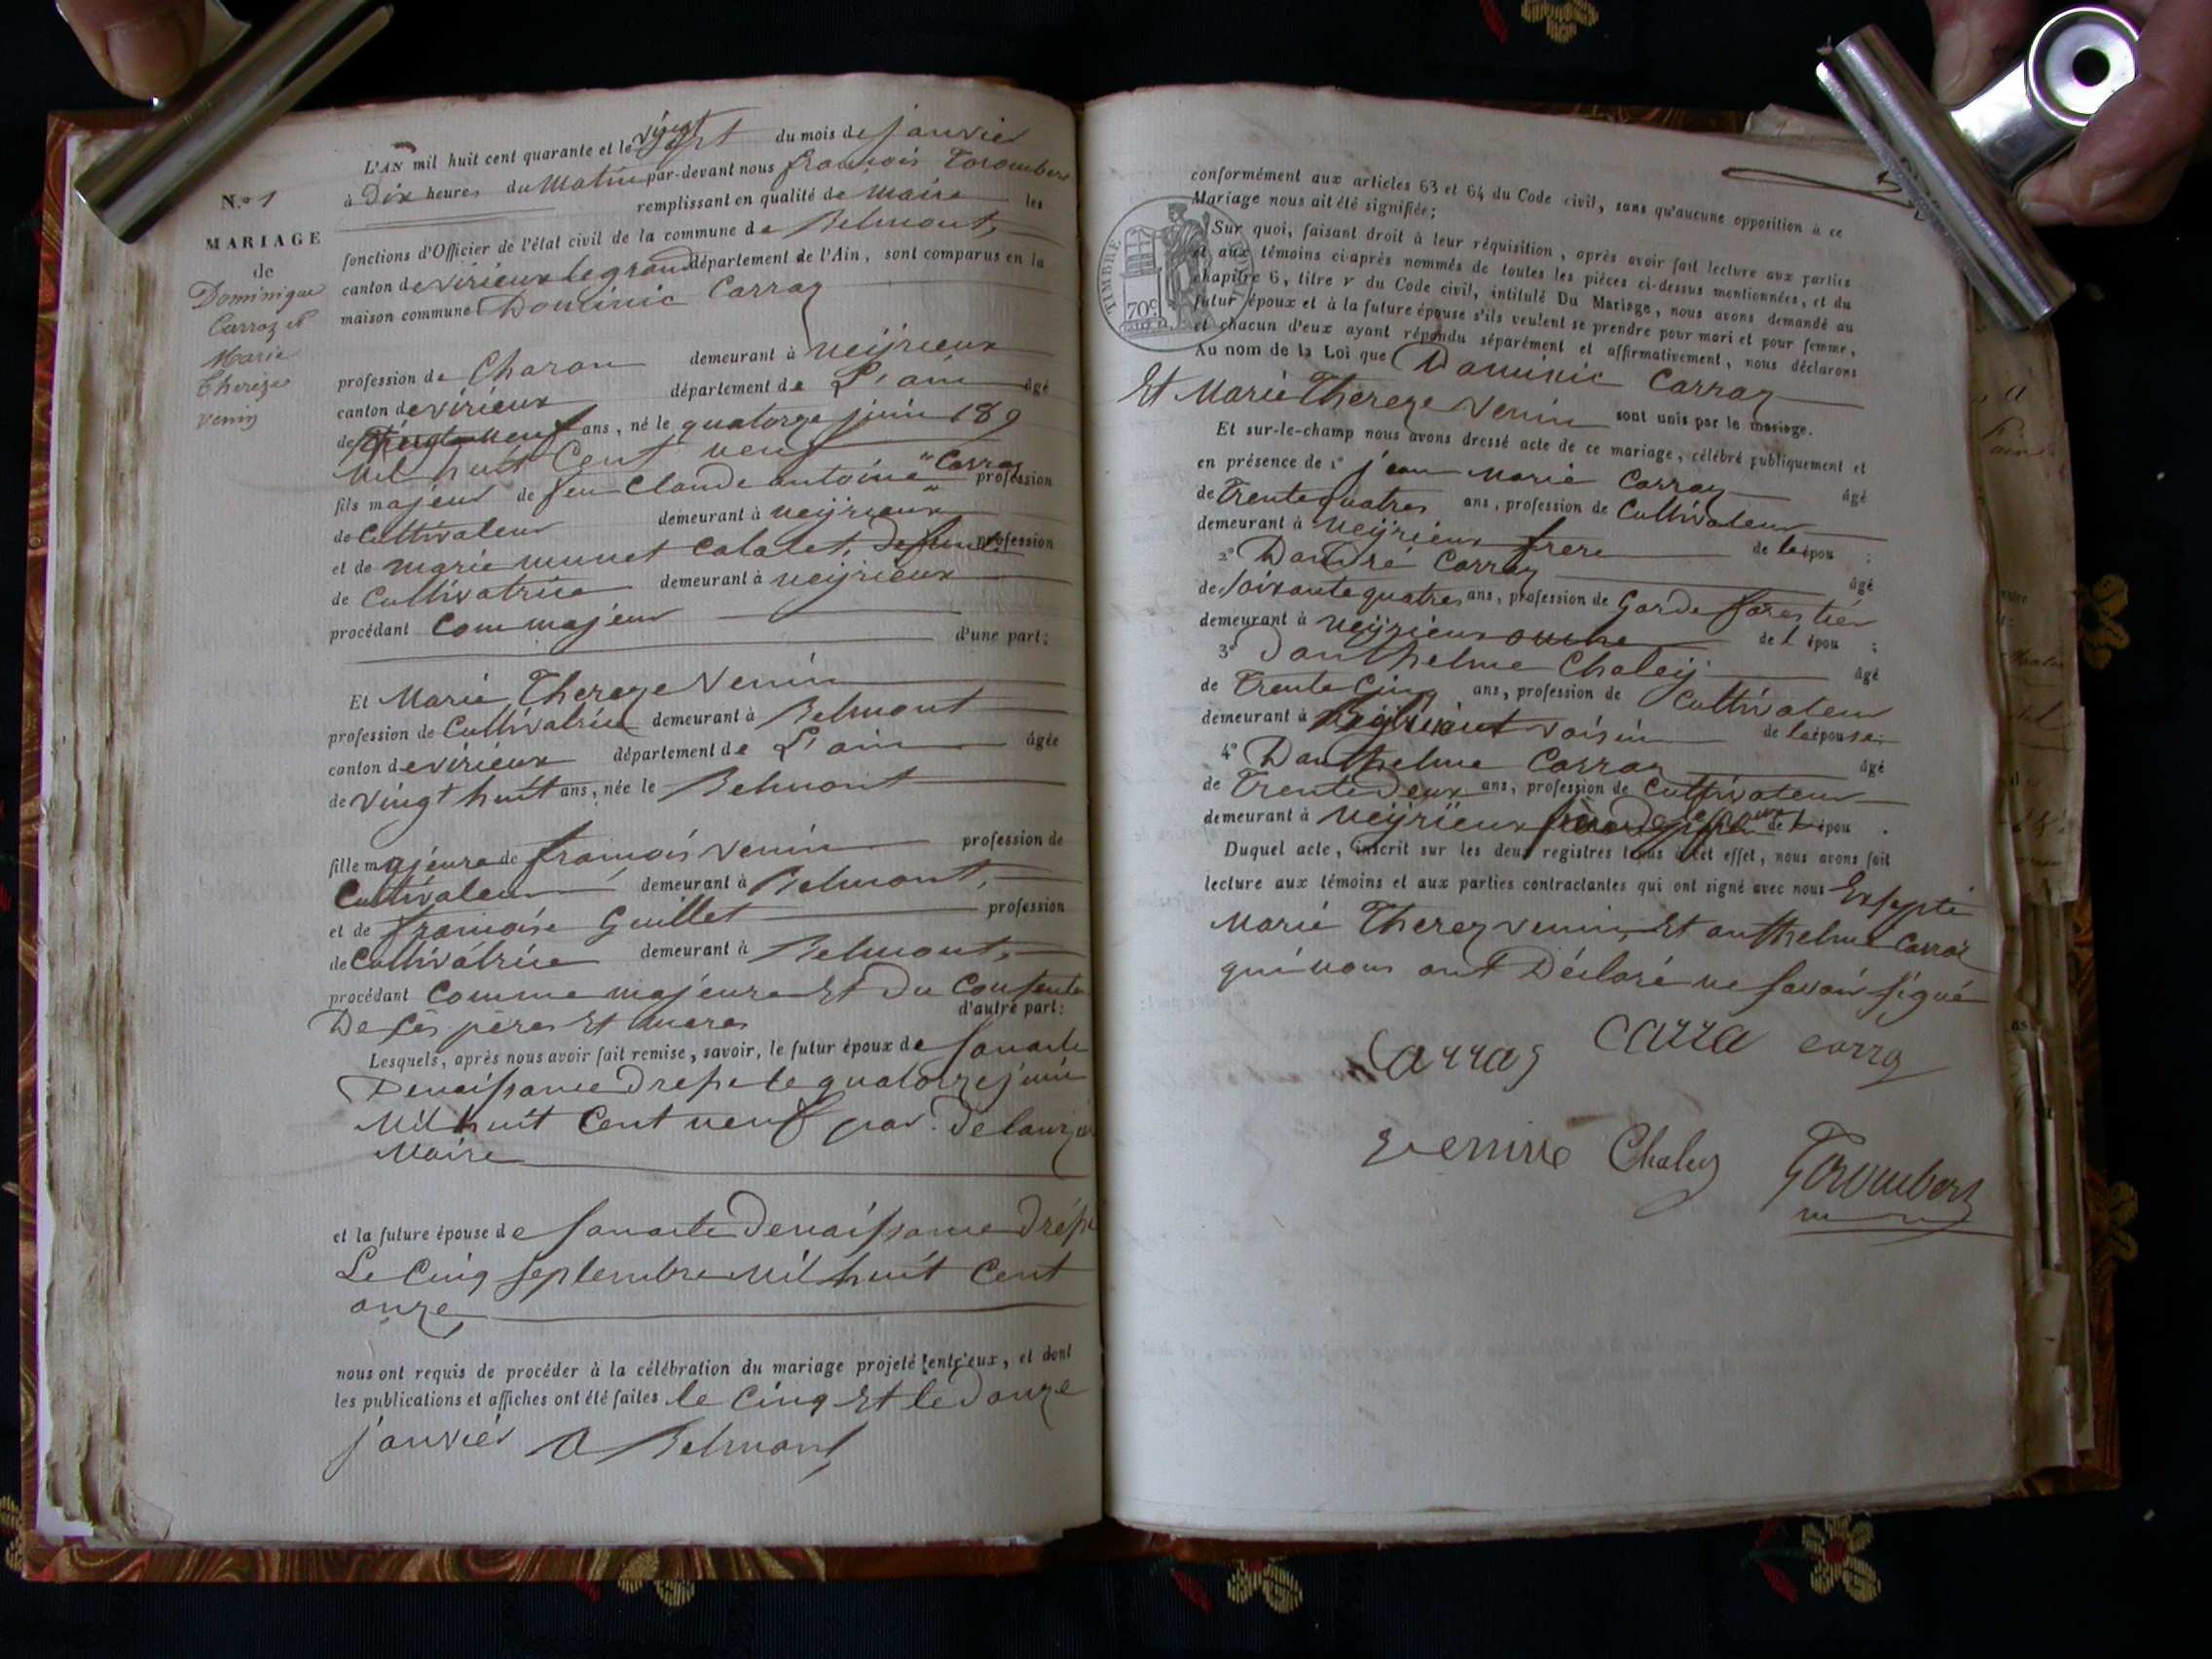 N.o 1
MARIAGE
de
Dominique
Carraz et
Marie
Thereze
venin
L'AN mil huit cent quarante et le vingt sept du mois de janvier
à Dix heures du Matin par-devant nous françois Torombert
remplissant en qualité de Maire les
fonctions d'Officier de l'état civil de la commune de Belmont,
canton de virieux le grand département de l'Ain, sont comparus en la
maison commune Dominic Carraz
profession de Charon demeurant à neÿrieux
canton de virieux département de L'ain âgé
de neuf ans, né le quatorze juin 189
Mil huit Cent neuf
fils majeur de feu Claude antoine Carraz profession
de Cultivateur demeurant à neÿrieux
et de marie munet Calalet, Defunte profession
de Cultivatrice demeurant à neÿrieux
procédant Com majeur
d'une part;
Et Marie Thereze Venin
profession de Cultivatrice demeurant à Belmont
canton de virieux département de L'ain âgée
de vingt huit ans, née le Belmont
fille majeure de françois venin profession de
Cultivateur demeurant à Belmont,
et de françoise Guillet profession
de Cultivatrice demeurant à Belmont,
procédant Comme majeure Et Du Consente
d'autre part:
De ses pères Et meres
Lesquels, après nous avoir fait remise, savoir, le futur époux de son acte
De naissance Dressé le quatorze juin
Mil huit Cent neuf par
Maire
et la future épouse de son acte De naissance Dréssé
Le Cinq septembre Mil huit Cent
onze
nous ont requis de procéder à la célébration du mariage projeté entr'eux, et dont
les publications et affiches ont été faites le Cinq Et le Douze
janvier A Belmont
conformément aux articles 63 et 64 du Code civil, sans qu'aucune opposition à ce
Mariage nous ait été signifiée;
TIMBRE
70c
Sur quoi, faisant droit à leur réquisition, après avoir fait lecture aux parties
et aux témoins ci-après nommés de toutes les pièces ci-dessus mentionnées, et du
chapitre 6, titre v du Code civil, intitulé Du Mariage, nous avons demandé au
futur époux et à la future épouse s'ils veulent se prendre pour mari et pour femme,
et chacun d'eux ayant répondu séparément et affirmativement, nous déclarons
Au nom de la Loi que Dominic Carraz
Et Marie Thereze Venin sont unis par le mariage.
Et sur-le-champ nous avons dressé acte de ce mariage, célébré publiquement et
en présence de 1° jean Marie Carraz âgé
de Trente quatres ans, profession de Cultivateur
demeurant à Neÿrieux frere de le épou ;
2° D andré Carraz âgé
de soixante quatres ans, profession de Garde forestier
demeurant à Neÿrieux oncle de l épou ;
3° D anthelme Chaleÿ âgé
de Trente Cinq ans, profession de Cultivateur
demeurant à voisin de la épouse;
4° D anthelme Carraz âgé
de Trente Deux ans, profession de Cultivateur
demeurant à Neÿrieux de L épou .
Duquel acte, inscrit sur les deux registres tenus à cet effet, nous avons fait
lecture aux témoins et aux parties contractantes qui ont signé avec nous Exsepté
Marie Therez venin, Et anthelme Carraz
qui nous ont Déclaré ne savoir signé
Carraz Carra carra
venin Chaley Torombert